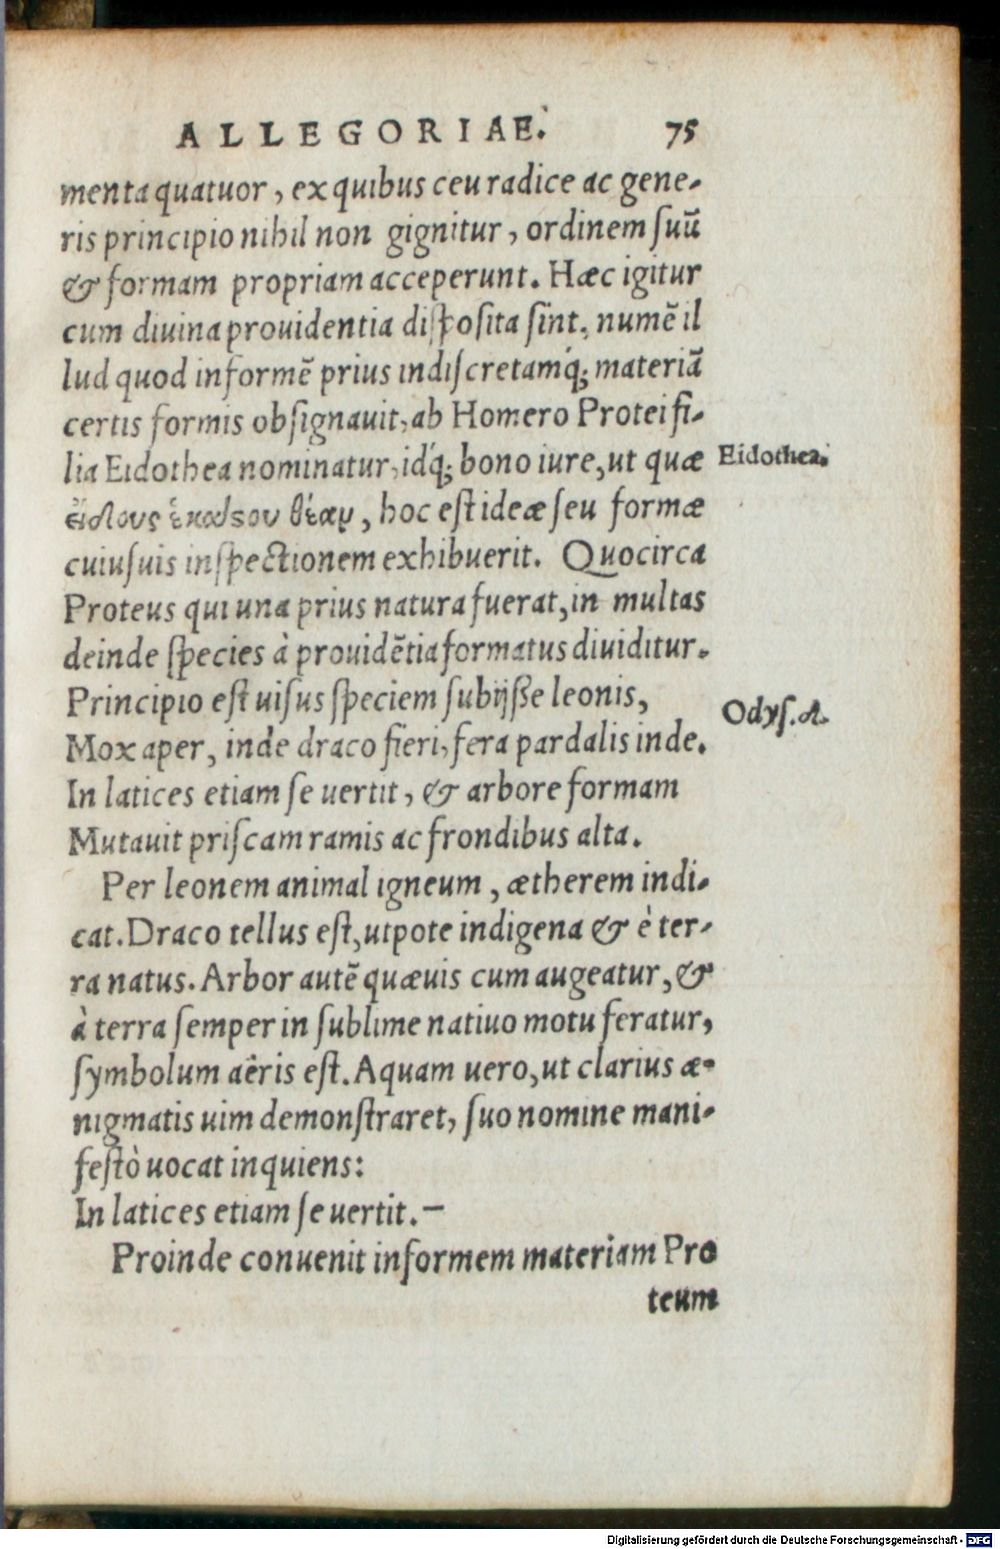 ALLEGORIAE. 75
menta quatuor, ex quibus ceu radice ac gene-
ris principio nihil non gignitur, ordinem ſuū
& formam propriam acceperunt. Hæc igitur
cum diuina prouidentia diſpoſita ſint, numē il
lud quod informē prius indiſcretamq́; materiā
certis formis obſignauit, ab Homero Protei fi-
lia Eidothea nominatur, idq́; bono iure, ut quæ
Eidothea.
εἴδους ἑκάϛου θέαν, hoc eſt ideæ ſeu formæ
cuiuſuis inſpectionem exhibuerit. Quocirca
Proteus qui una prius natura fuerat, in multas
deinde ſpecies à prouidētia formatus diuiditur.
Principio eſt uiſus ſpeciem ſubijſſe leonis,
Odyſ. Δ.
Mox aper, inde draco fieri, fera pardalis inde.
In latices etiam ſe uertit, & arbore formam
Mutauit priſcam ramis ac frondibus alta.
Per leonem animal igneum, ætherem indi-
cat. Draco tellus eſt, utpote indigena & è ter-
ra natus. Arbor autē quæuis cum augeatur, &
à terra ſemper in ſublime natiuo motu feratur,
ſymbolum aëris eſt. Aquam uero, ut clarius æ-
nigmatis uim demonſtraret, ſuo nomine mani-
feſtò uocat inquiens:
In latices etiam ſe uertit. —
Proinde conuenit informem materiam Pro
teum
Digitalisierung gefördert durch die Deutsche Forschungsgemeinschaft - DFG